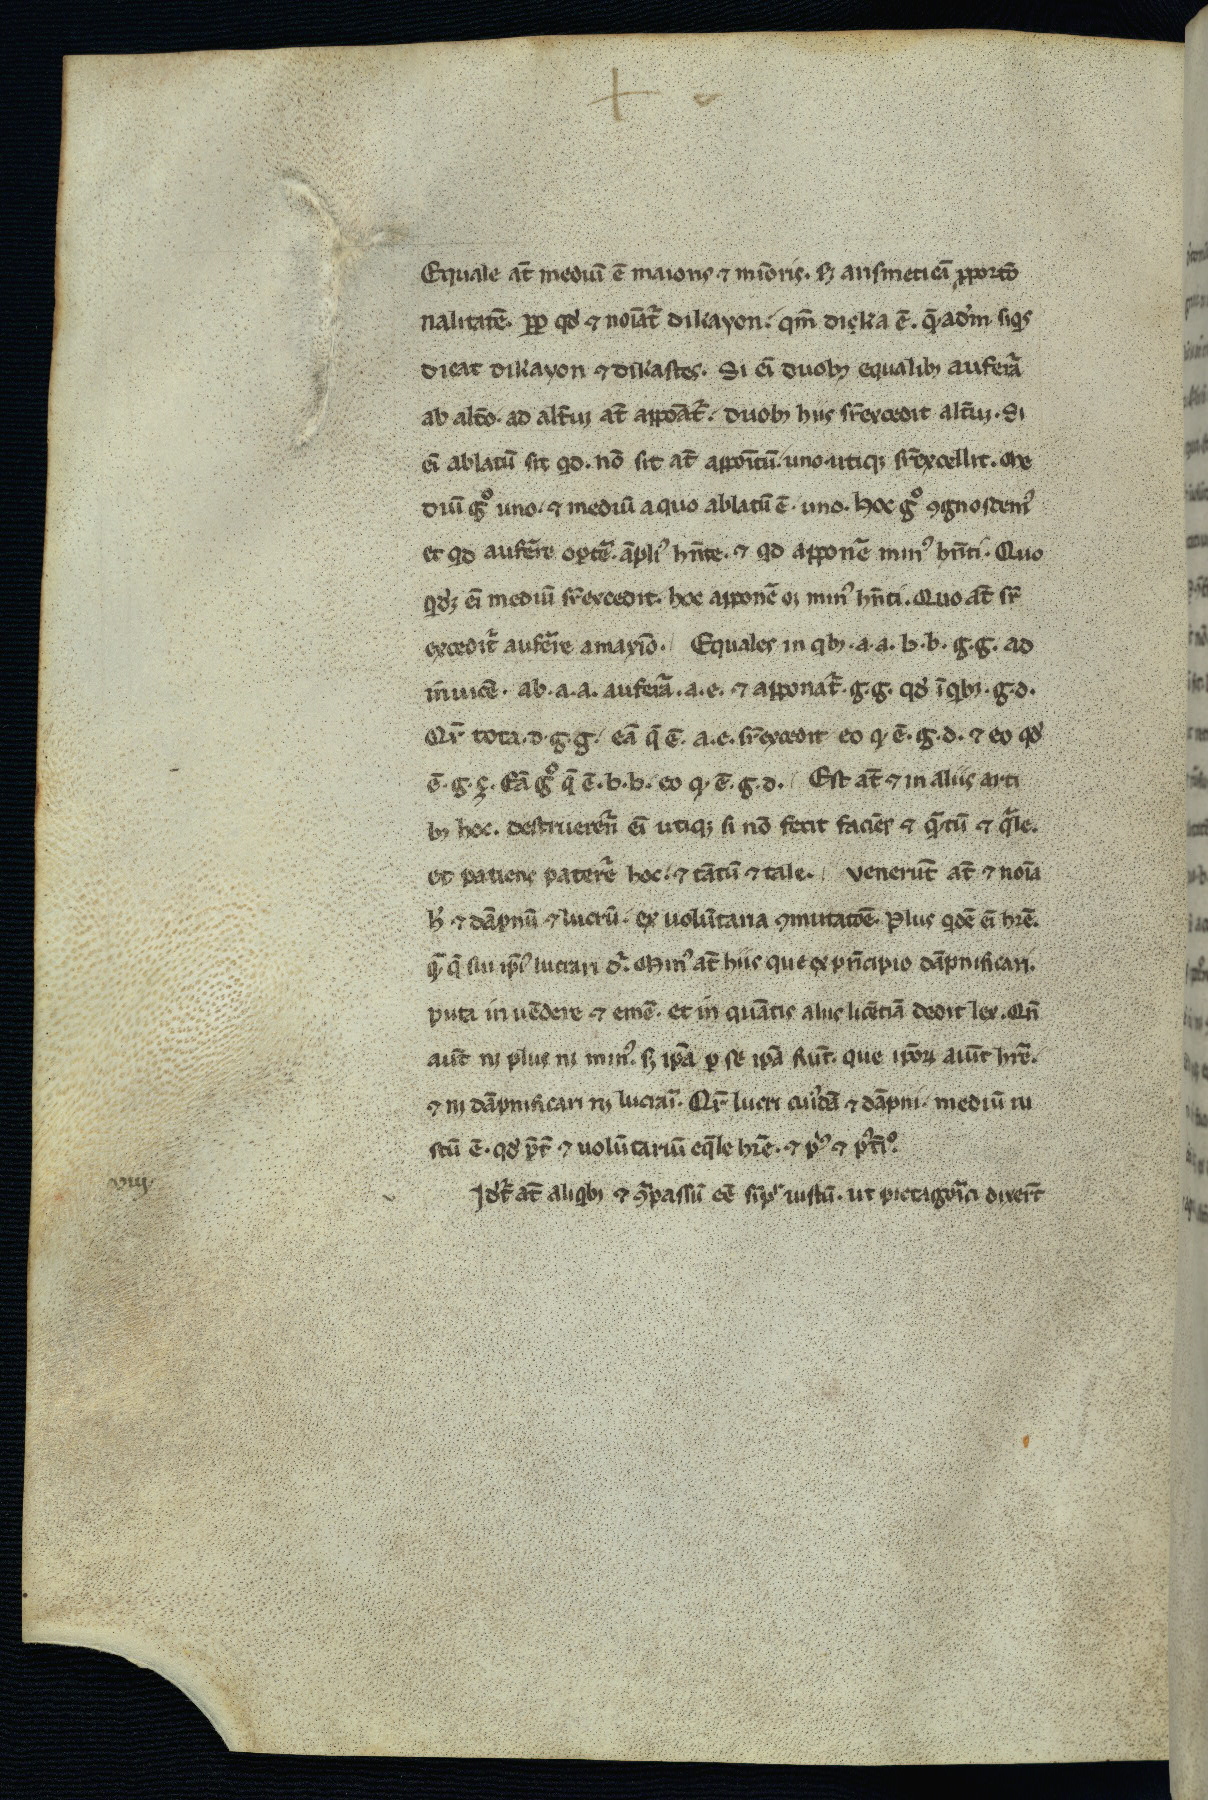 Equale at̄ mediū ē maioris ⁊ mīoris. sꝫ arismeticā ꝓporto
nalitatē. ꝓp qđ ⁊ noīat᷑ dikayon. qm̄ dicka ē. q̄adm̄ siqs
dicat dikayon ⁊ dikastes. Si eī duobꝫ equalibꝫ auferā
ab alt̄o. ad alt̄uꝫ at̄ appōat᷑. duobꝫ hiis sr̄excedit alt̄uꝫ. Si
eī ablatū sit qd. nō sit at̄ apponītū. uno utiqꝫ sr̄excellit. Me
diū gͦ uno. ⁊ mediū a quo ablatū ē uno. hoc gͦ ꝯgnoscemꝰ
et qd auferre oꝑtē. āpliꝰ hn̄te. ⁊ qd apponē minꝰ hn̄ti. Quo
qđꝫ eī mediū sr̄excedit. hoc apponē oꝫ minꝰ hn̄ti. Quo at̄ sr̄
excedit᷑ auferre a maxīo. Equales in qbꝫ. a. a. b. b. g. g. ad
inuicē. ab. a. a. auferā. a. e. ⁊ apponat᷑. g. g. qđ ī qbꝫ. g. d.
Qr̄ tota. d. g. g. eā q̄ ē. a. e. sr̄excedit eo q ē. g. d. ⁊ eo qđ
ē. g. ç. Eā gͦ q̄ ē. b. b. eo q ē. g. d. Est at̄ ⁊ in aliis arti
bꝫ hoc. destruerēn̄ eī utiqꝫ si nō fecit faciēs ⁊ qᵃtū ⁊ qᵃle.
et patiens paterē hoc. ⁊ tātū ⁊ tale. Venerūt at̄ ⁊ noīa
h̄ ⁊ dāpnū ⁊ lucrū. ex uolūtaria ꝯmutatōe. Plus qdē eī hr̄e.
qᵃ q̄ sui ip̄iꝰ lucrari dr̄. Minꝰ at̄ hiis que ex pⁱncipio dāpnificari.
puta in uēdere ⁊ emē. et in quātis aliis licētiā dedit lex. Qn̄
aūt nꝫ plus nꝫ minꝰ. sꝫ ip̄a ꝑ se ip̄a fiūt. que ip̄oꝝ aiūt hr̄e.
⁊ nꝫ dāpnificari nꝫ lucrari. Qr̄ lucri cuiꝰdā ⁊ dāpni. mediū iu
stū ē. qđ p̄t ⁊ uolūtariū eq̄le hr̄e. ⁊ pⁱꝰ ⁊ pᵗ̄iꝰ.
Jdr̄ at̄ aliqbꝫ ⁊ ꝯᵃpassū eē simpᵗ iustū. ut pictagorici dixer̄t